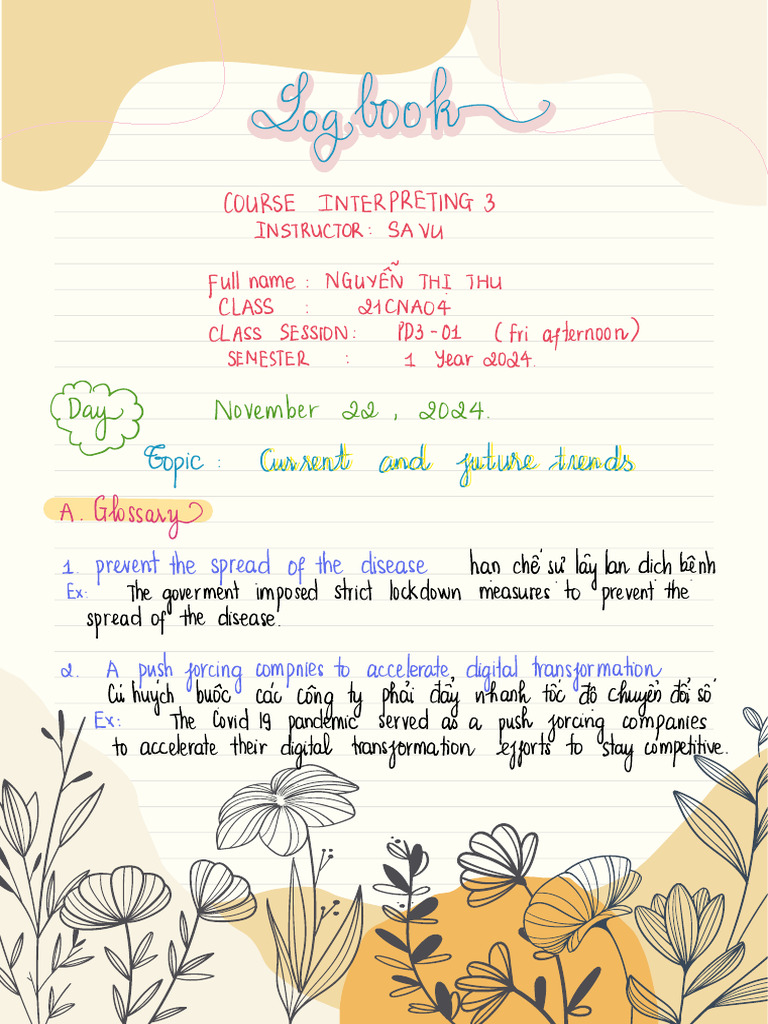 Log book
COURSE INTERPRETING 3
INSTRUCTOR: SA VU
Full name : NGUYỄN THỊ THU
CLASS : 21CNA04
CLASS SESSION: PD3-01 (fri afternoon)
SEMESTER : 1 Year 2024.
Day November 22, 2024.
Topic : Current and future trends
A. Glossary
1. prevent the spread of the disease hạn chế sự lây lan dịch bệnh
Ex: The goverment imposed strict lockdown measures to prevent the
spread of the disease.
2. A push forcing compnies to accelerate digital transformation
Cú huých buộc các công ty phải đẩy nhanh tốc độ chuyển đổi số
Ex: The Covid 19 pandemic served as a push forcing companies
to accelerate their digital transformation efforts to stay competitive.